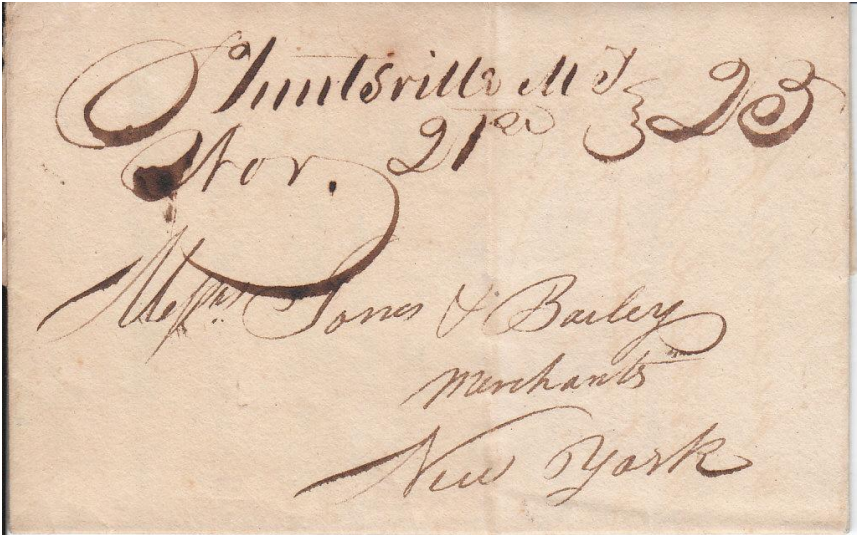 Huntsville Md 25
Nov. 21st
Messrs Jones & Bailey
Merchants
New York